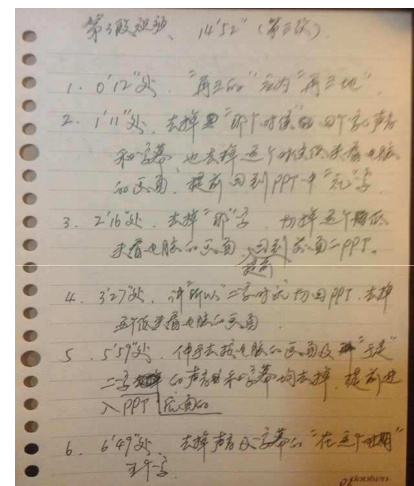 第3段视频、14'52"（第三次）.
1. 0'12"处、"再三的"应为"再三地".
2. 1'11"处、去掉"那个时候"四个字声音
和字幕 也去掉这个时候低头看电脑
的画面，提前回到PPT中"元"字.
3. 2'16处、去掉"那"字，切掉这个低
头看电脑的画面、提前回到前面一PPT.
4. 3'27处，讲"所以"二字时就切回PPT，去掉
这个低头看电脑的画面
5. 5'59"处、伸手去按电脑的画面及"于是"
二字的声音和字幕均去掉，提前进
入PPT后面的
6. 6'49处 去掉声音及字幕的"在这个时期"
五个字